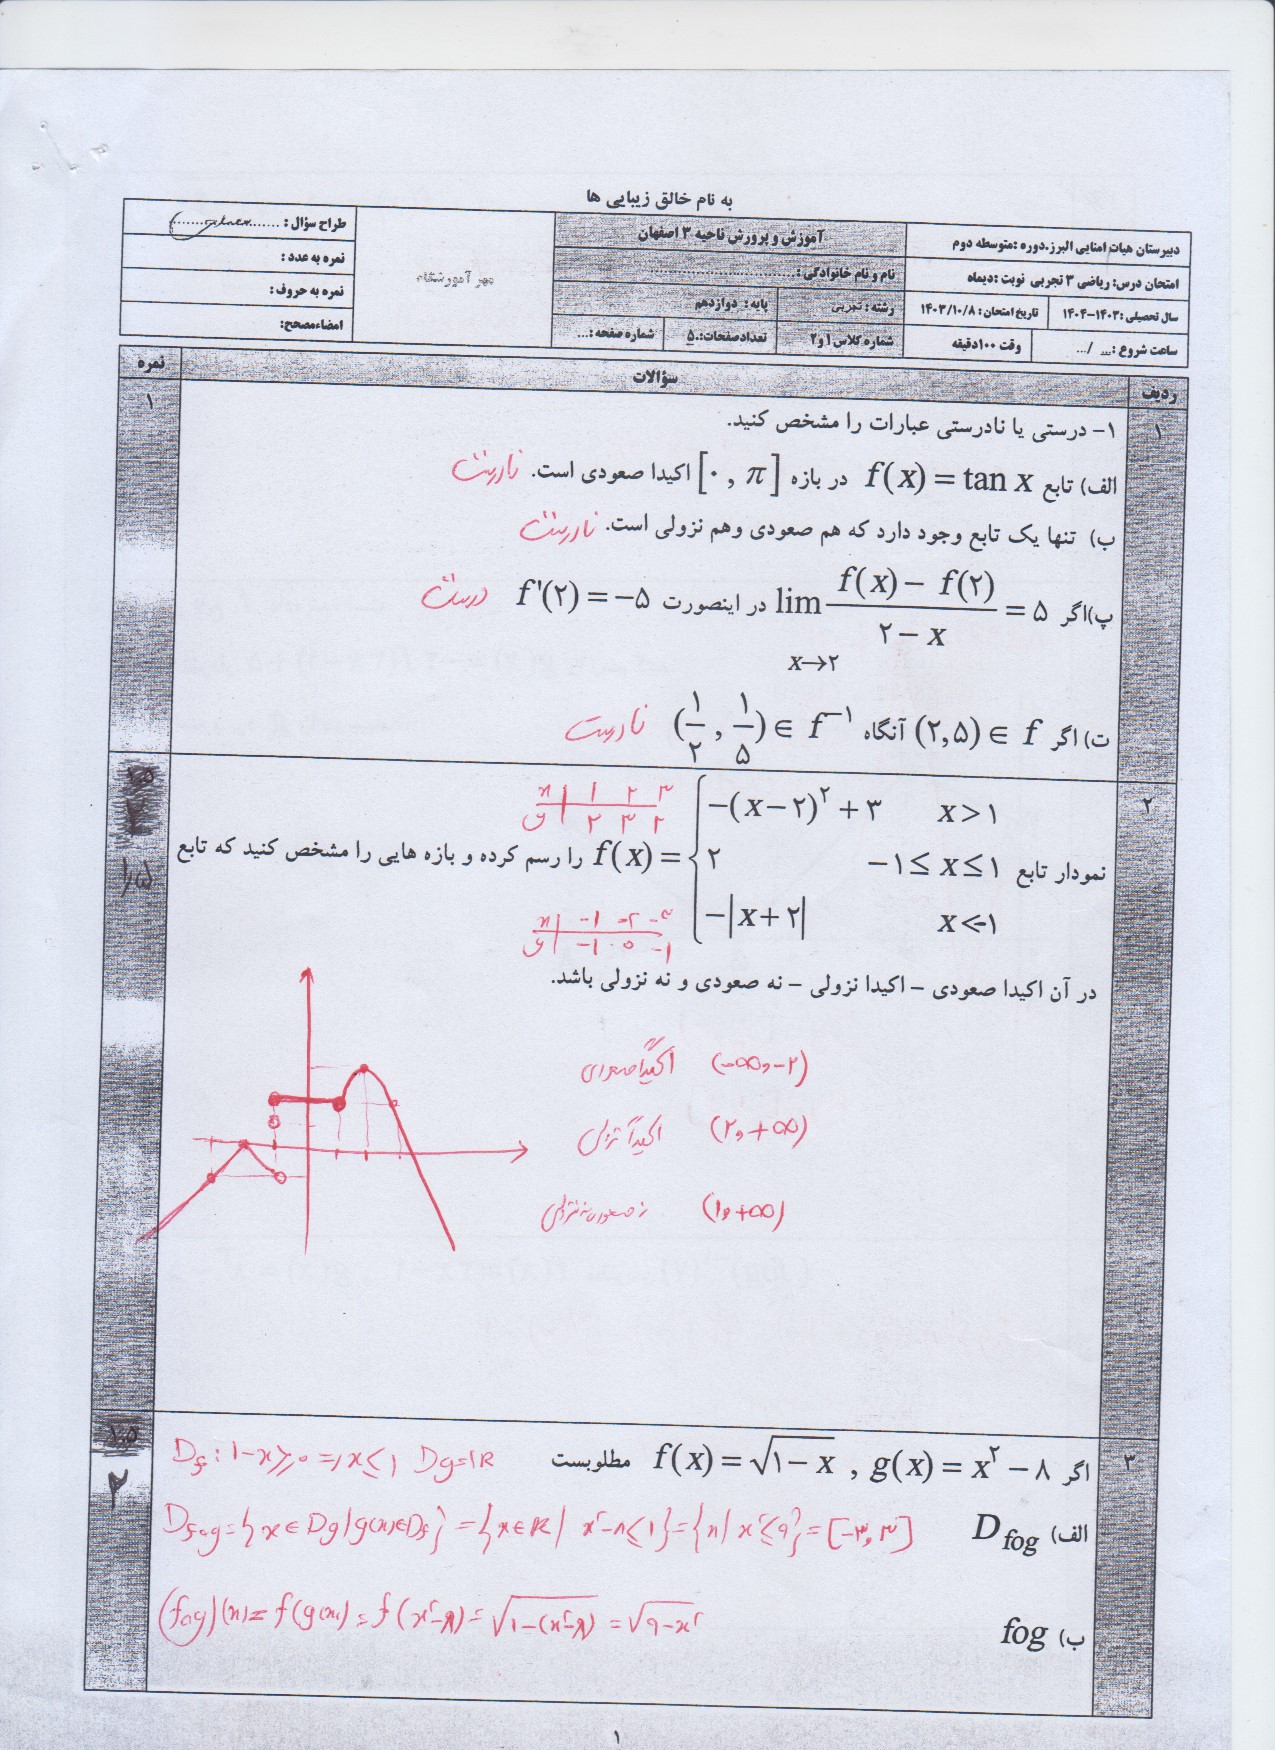 به نام خالق زیبایی ها
دبیرستان هیات امنایی البرز.دوره :متوسطه دوم
آموزش و پرورش ناحیه ۳ اصفهان
طراح سؤال :
امتحان درس: ریاضی ۳ تجربی نوبت :دیماه
نام و نام خانوادگی :
مهر آموزشگاه
نمره به عدد :
سال تحصیلی :۱۴۰۳-۱۴۰۴
تاریخ امتحان : ۱۴۰۳/۱۰/۸
رشته : تجربی
پایه : دوازدهم
نمره به حروف :
ساعت شروع :... /...
وقت ۱۰۰دقیقه
شماره کلاس ۱ و ۲
تعدادصفحات:.۵
شماره صفحه :...
امضاءمصحح:
ردیف سؤالات نمره
۱ ۱- درستی یا نادرستی عبارات را مشخص کنید. ۱
الف) تابع f(x) = tan x در بازه [۰ , π] اکیدا صعودی است. نادرست
ب) تنها یک تابع وجود دارد که هم صعودی وهم نزولی است. نادرست
پ)اگر lim x→۲ (f(x) − f(۲))/(۲ − x) = ۵ در اینصورت f'(۲) = −۵ درست
ت) اگر (۲,۵) ∈ f آنگاه (۱/۲ , ۱/۵) ∈ f⁻¹ نادرست
۲ −(x−۲)² + ۳ x>۱ ۲
x | ۱ ۲ ۳
y | ۲ ۳ ۲
نمودار تابع f(x) = { ۲ −۱ ≤ x ≤ ۱ را رسم کرده و بازه هایی را مشخص کنید که تابع ۱٫۵
−|x+۲| x<-۱
x | −۱ −۲ −۳
y | −۱ ۰ −۱
در آن اکیدا صعودی – اکیدا نزولی – نه صعودی و نه نزولی باشد.
(−∞, −۲) اکیداً صعودی
(۲, +∞) اکیداً نزولی
(۱, +∞) نه صعودی نه نزولی
۳ اگر f(x) = √(۱−x) , g(x) = x² − ۸ مطلوبست ۲
Df : ۱−x ≥ ۰ ⇒ x ≤ ۱ Dg = IR
الف) D fog
Dfog = {x ∈ Dg | g(x) ∈ Df} = {x ∈ R | x²−۸ ≤ ۱} = {x | x² ≤ ۹} = [−۳, ۳]
ب) fog
(fog)(x) = f(g(x)) = f(x²−۸) = √(۱−(x²−۸)) = √(۹−x²)
۱